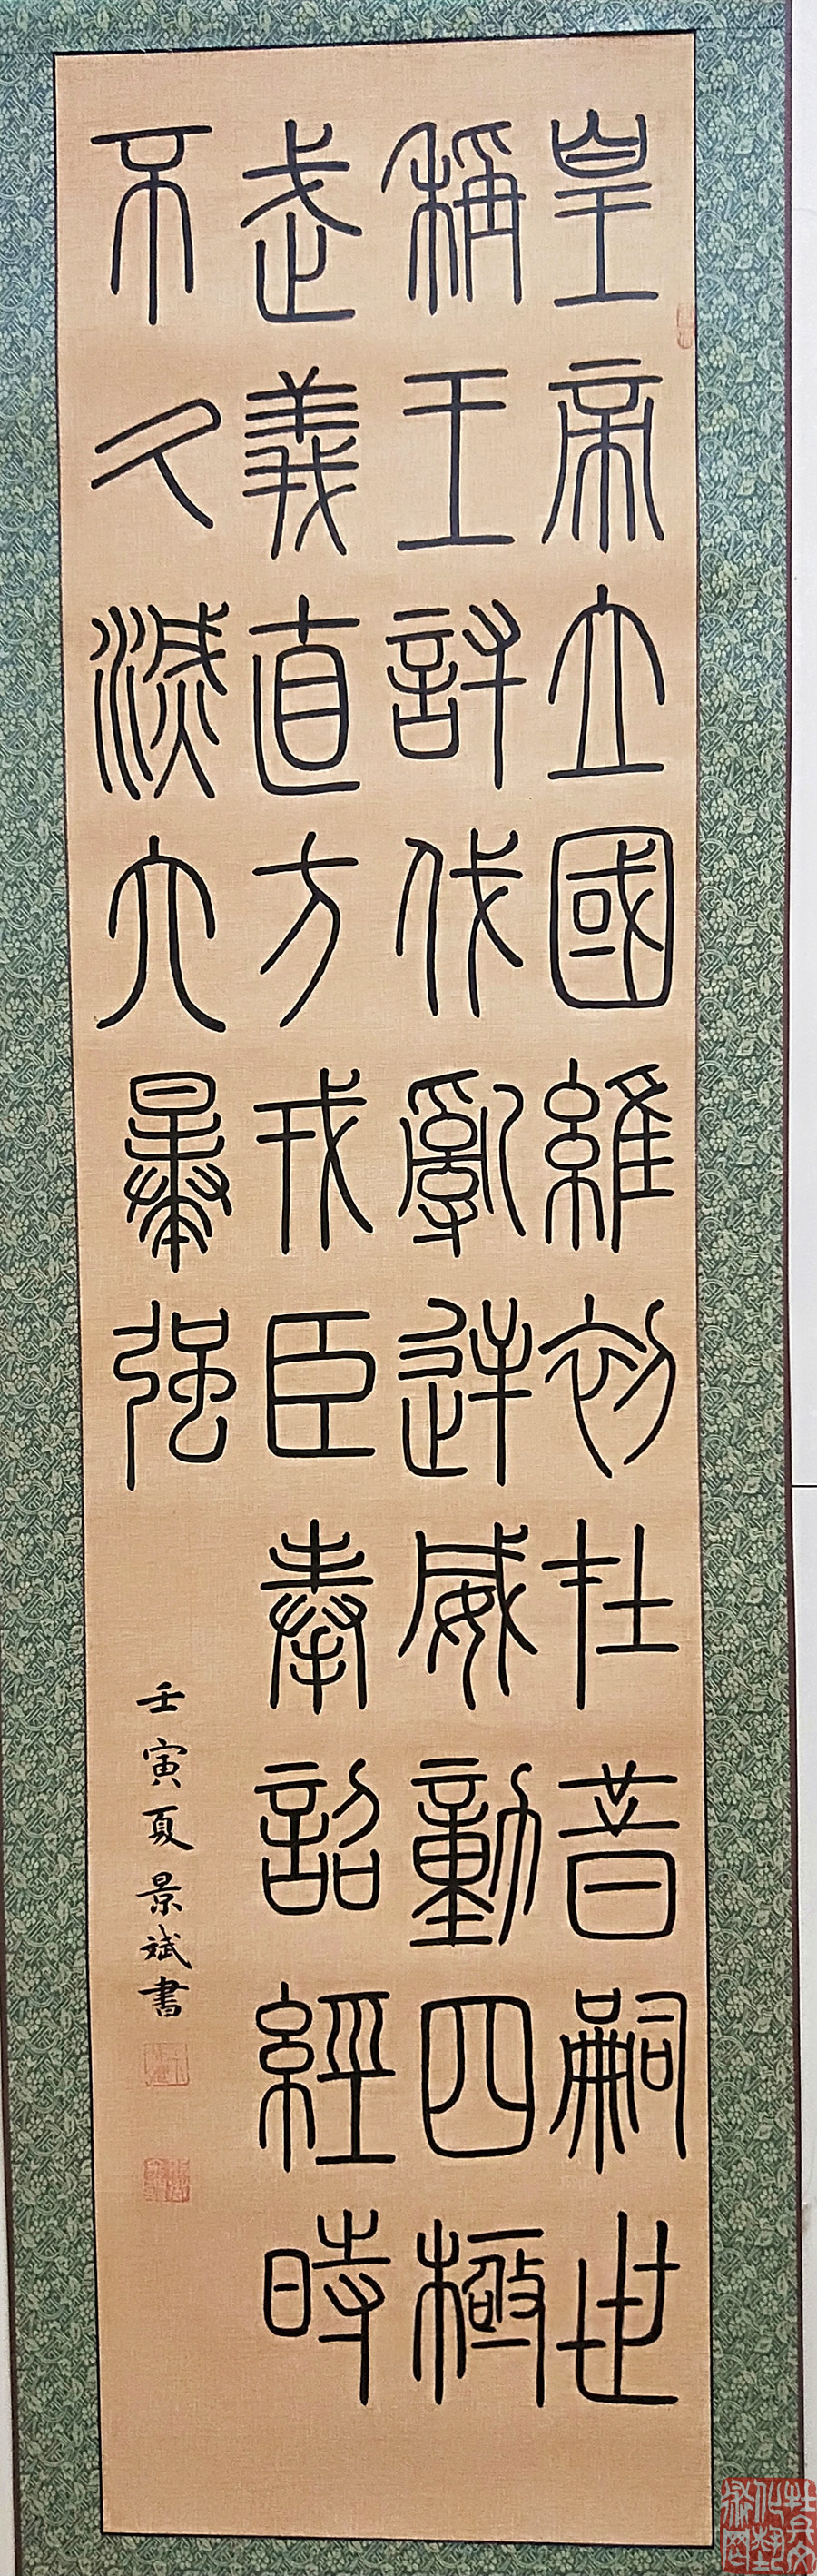 皇帝立國維初在昔嗣世
稱王討伐亂逆威動四極
武義直方戎臣奉詔經時
不久滅六暴強
壬寅夏景斌書